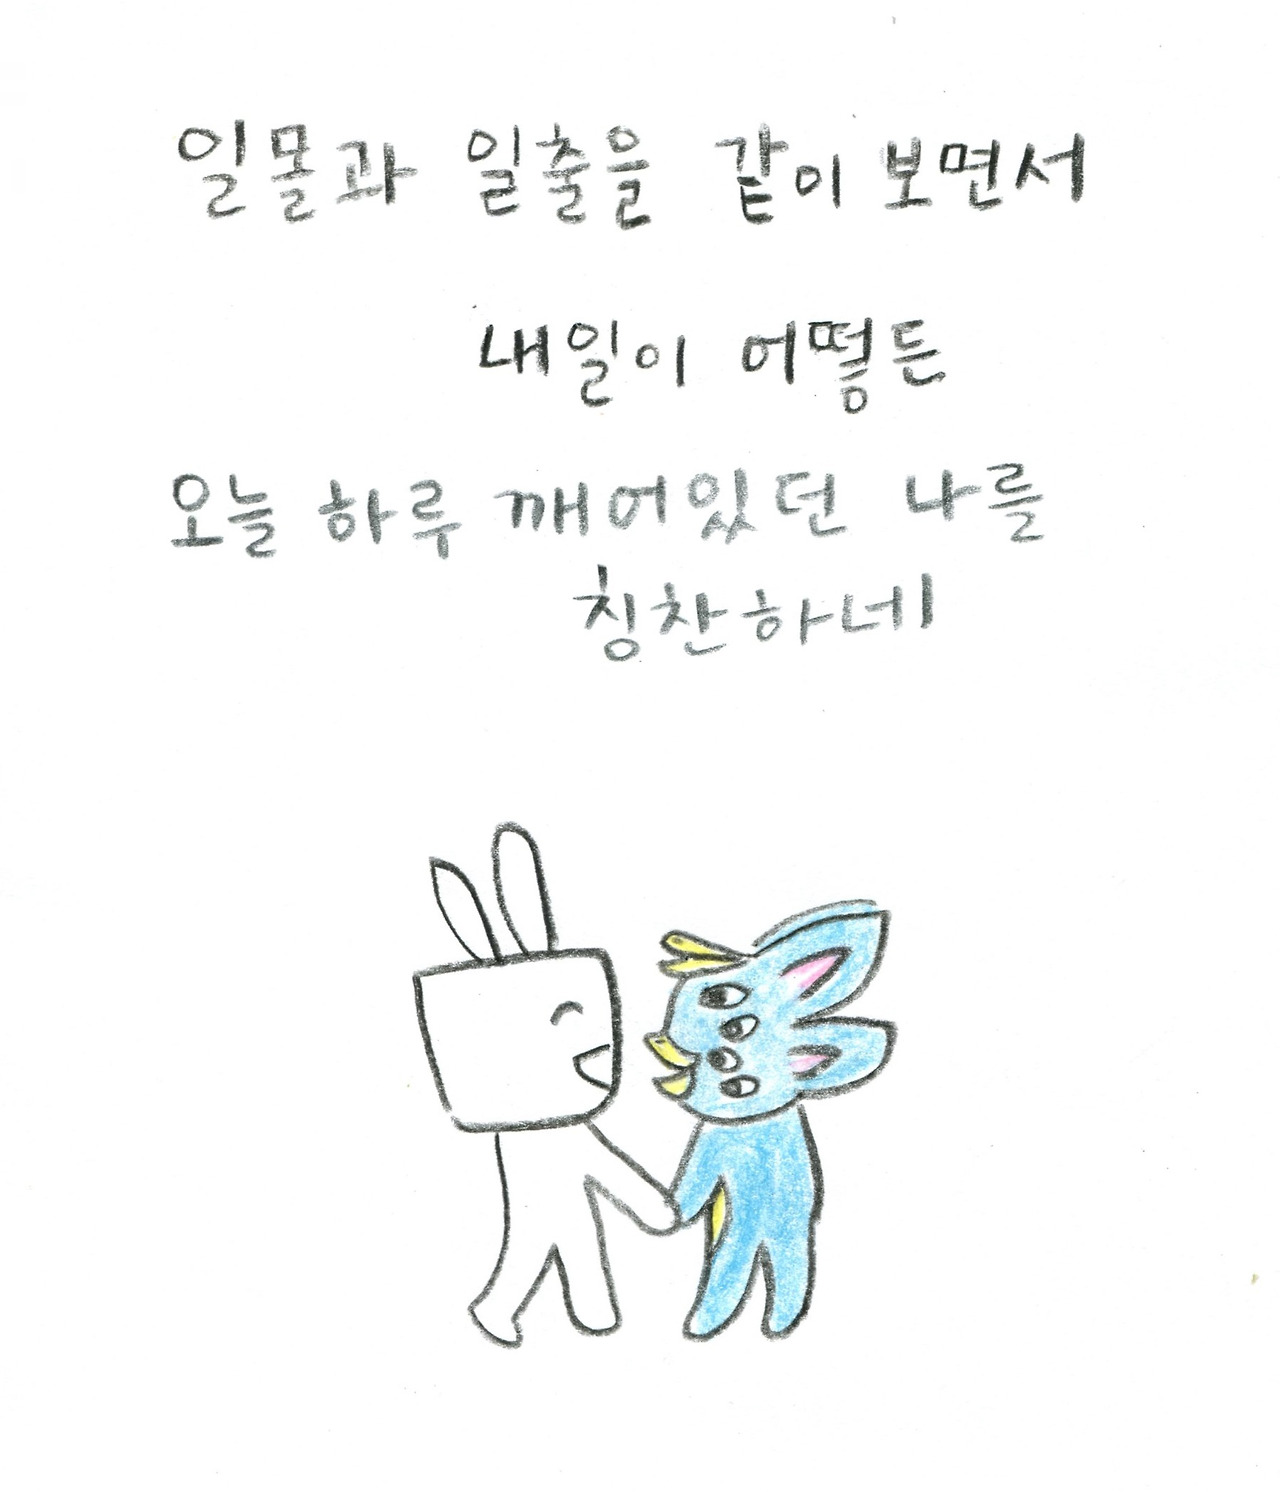 일몰과 일출을 같이 보면서
내일이 어떻든
오늘 하루 깨어있던 나를
칭찬하네